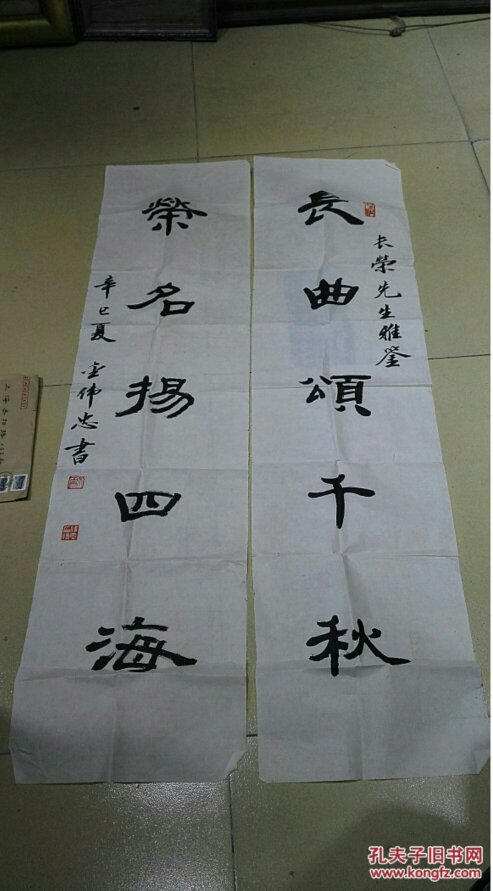 長曲頌千秋
长榮先生雅鑒
榮名揚四海
辛巳夏
金伟忠書
孔夫子旧书网
www.kongfz.com